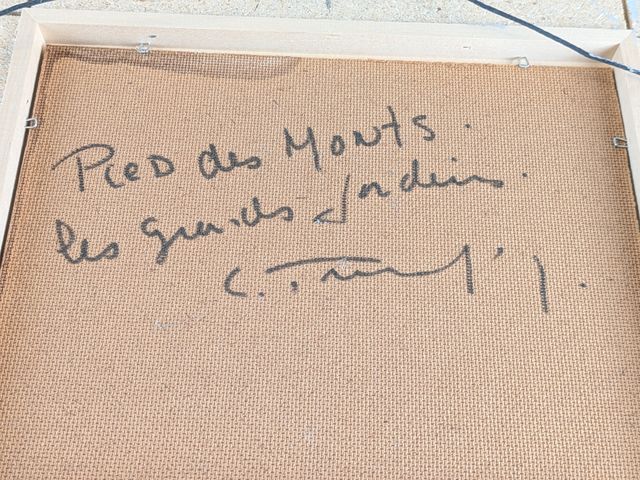 Pied des Monts.
les grands Jardins.
C.